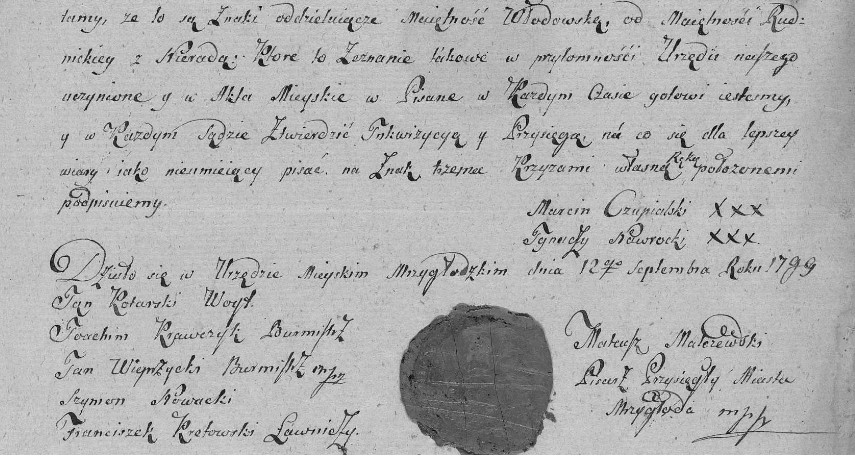 tamy, że to są Znaki oddzielaiące Maiętność Włodowską, od Maiętności Rud-
nickiey z Nieradą; Ktore to Zeznanie takowe w przytomności Urzędu naszego
uczynione y w Akta Mieyskie w Pisane w Kazdym Czasie gotowi iestesmy,
y w Kazdym Sądzie Ztwierdzić Inkwizycyą y Przysięgą, na co się dla lepszey
wiary iako nieumieiący pisać na Znak trzema Krzyzami własną Ręką połozonemi
podpisuiemy.
Marcin Czupialski XXX
Ignacy Nawrocki XXX
Działo się w Urzędzie Mieyskim Mrzygłodzkim dnia 12go Septembra Roku 1799
Jan Kotarski Woyt.
Joachim Krawczyk Burmistrz
Jan Więżycki Burmistrz mpp
Szymon Nowacki
Franciszek Kretowski Ławniczy.
Mateusz Malczewski
Pisarz Przysięgły Miasta
Mrzygłoda mpp